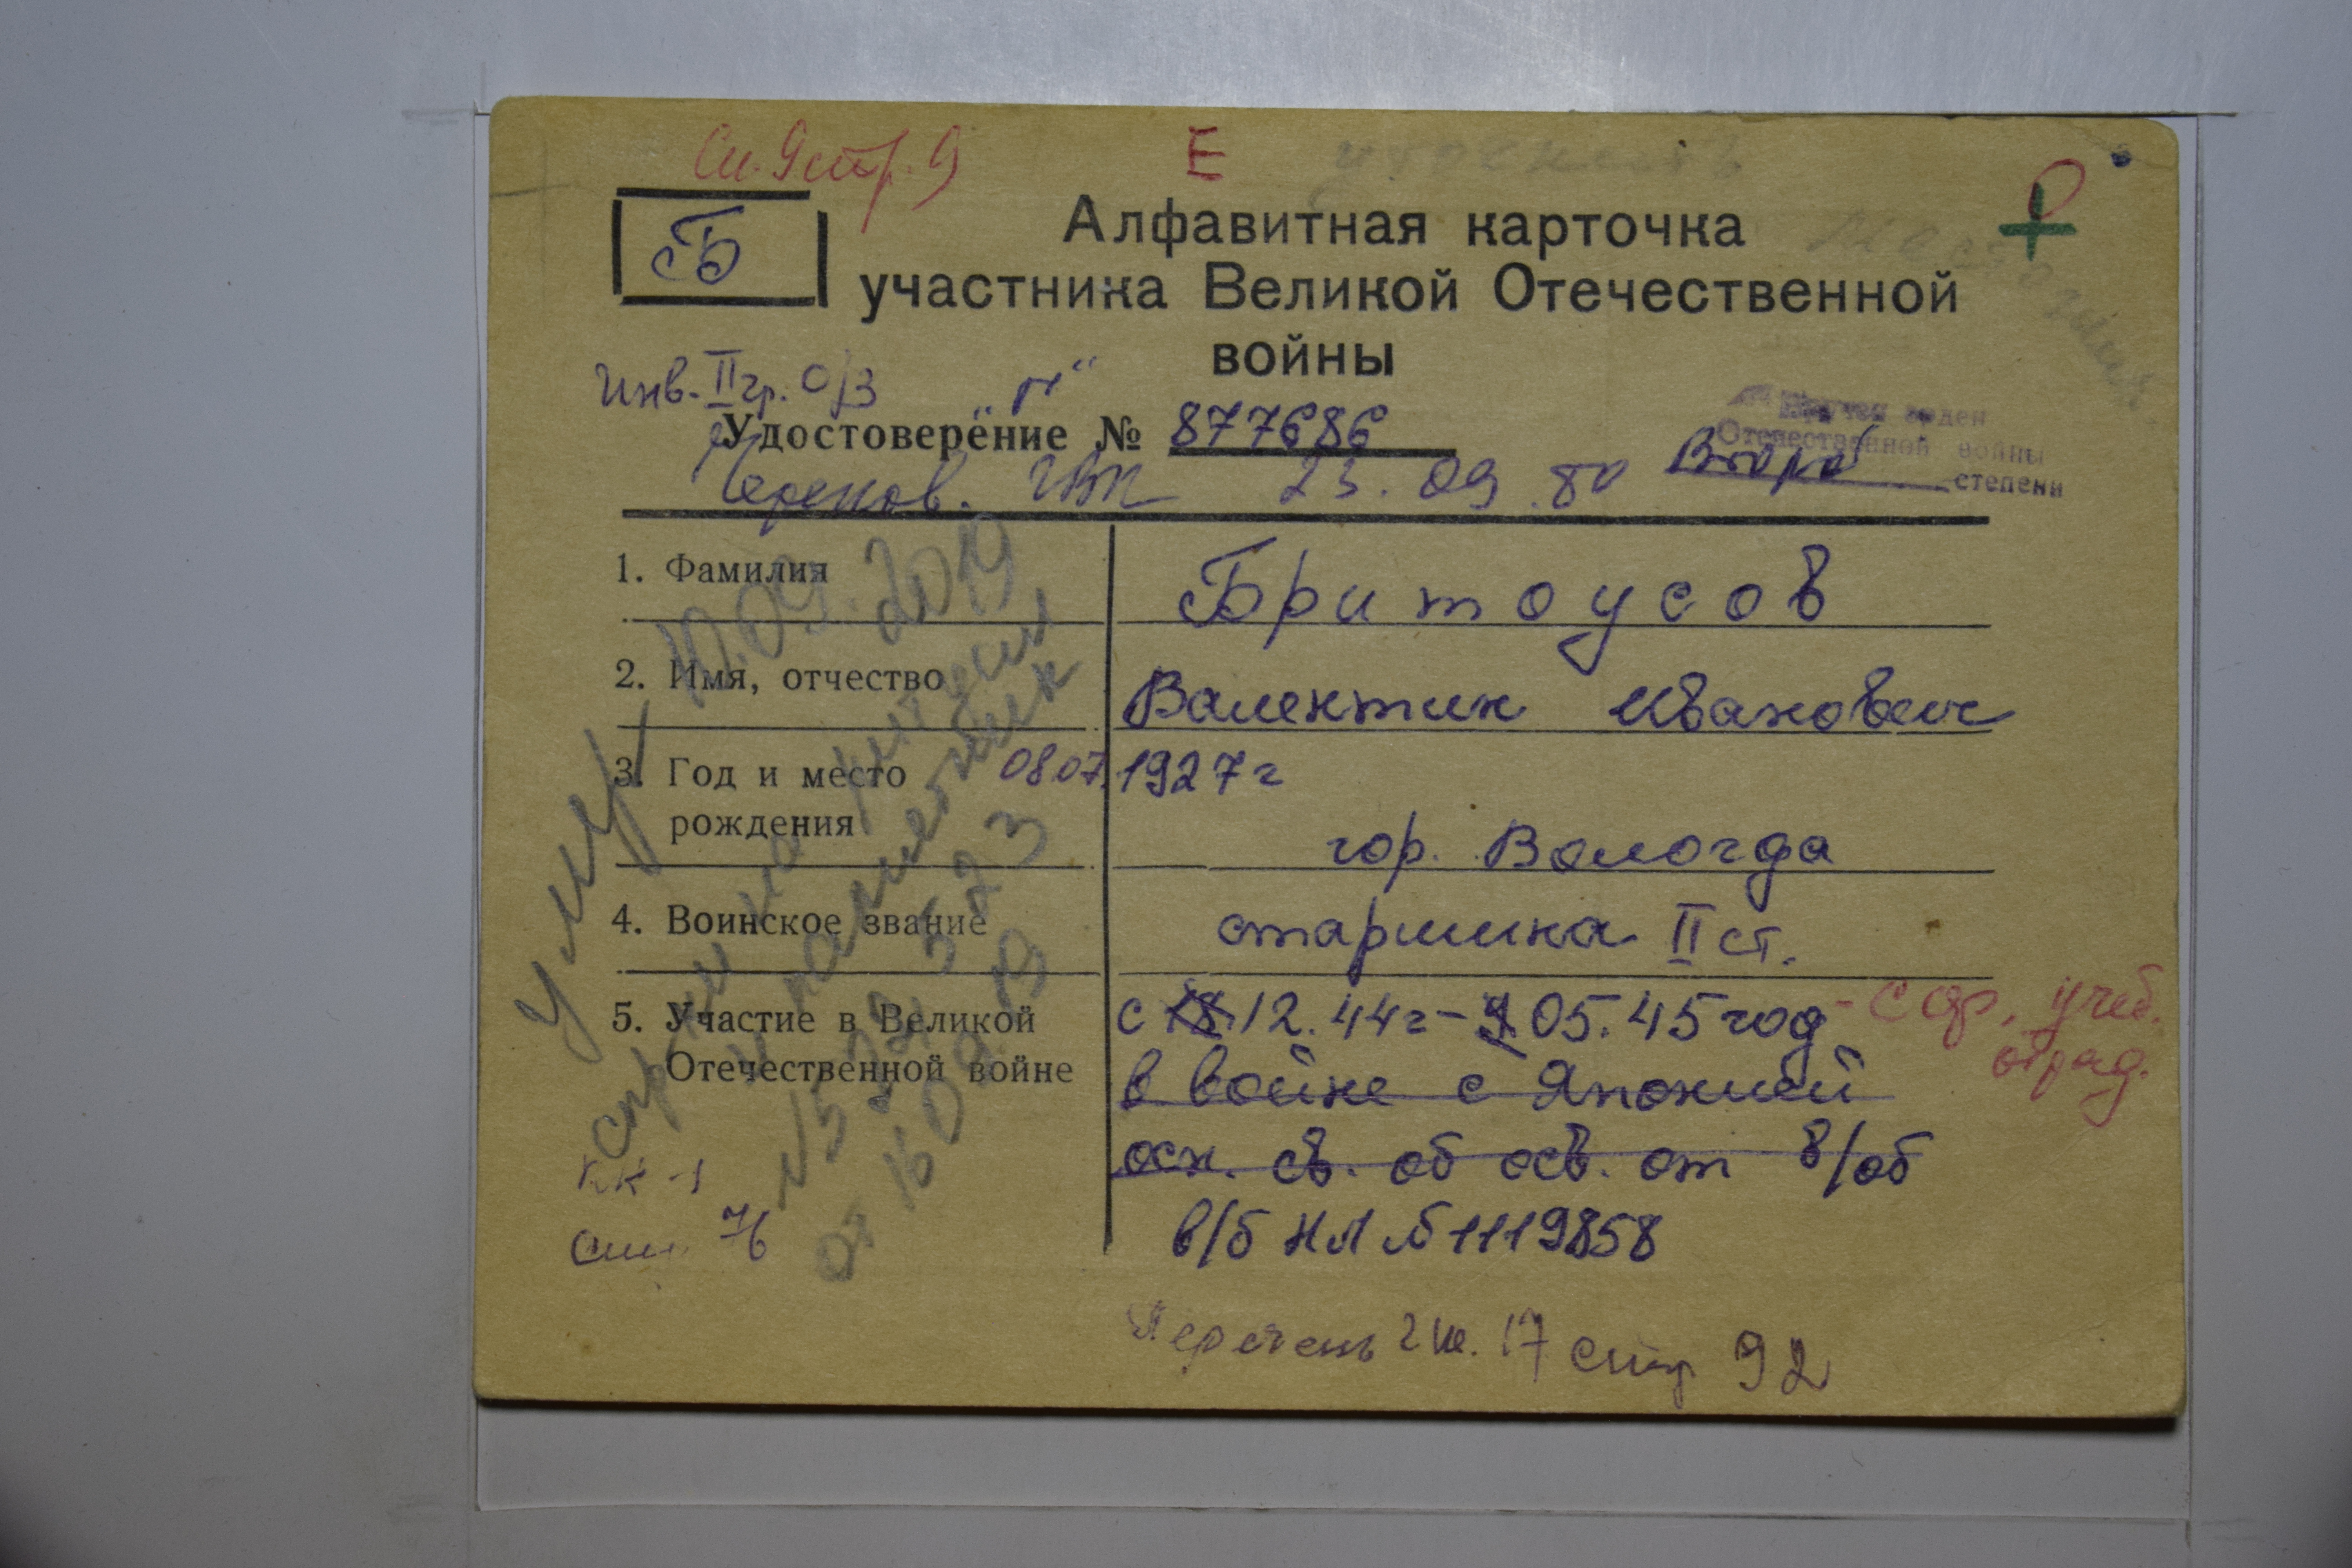 Е
Б
Алфавитная карточка
участника Великой Отечественной
войны
Инв. II гр. О/З
Удостоверение № 877686
Вручен орден
Отечественной войны
степени
Черепов. ГВК 23.09.80
1. Фамилия Бритоусов
2. Имя, отчество Валентин Иванович
3. Год и место 08.07. 1927г
рождения гор. Вологда
4. Воинское звание старшина II ст.
5. Участие в Великой с 18.12.44г - 9.05.45 год - Сф. учеб.
Отечественной войне в войне с Японией отряд.
осн. св. об осв. от в/об
в/б НЛ №1119858
Перечень 2 кн. 17 стр 92
умер 10.09.2019
спр-ки на ритуал
и памятник
№ 522, 523
от 16 09 19